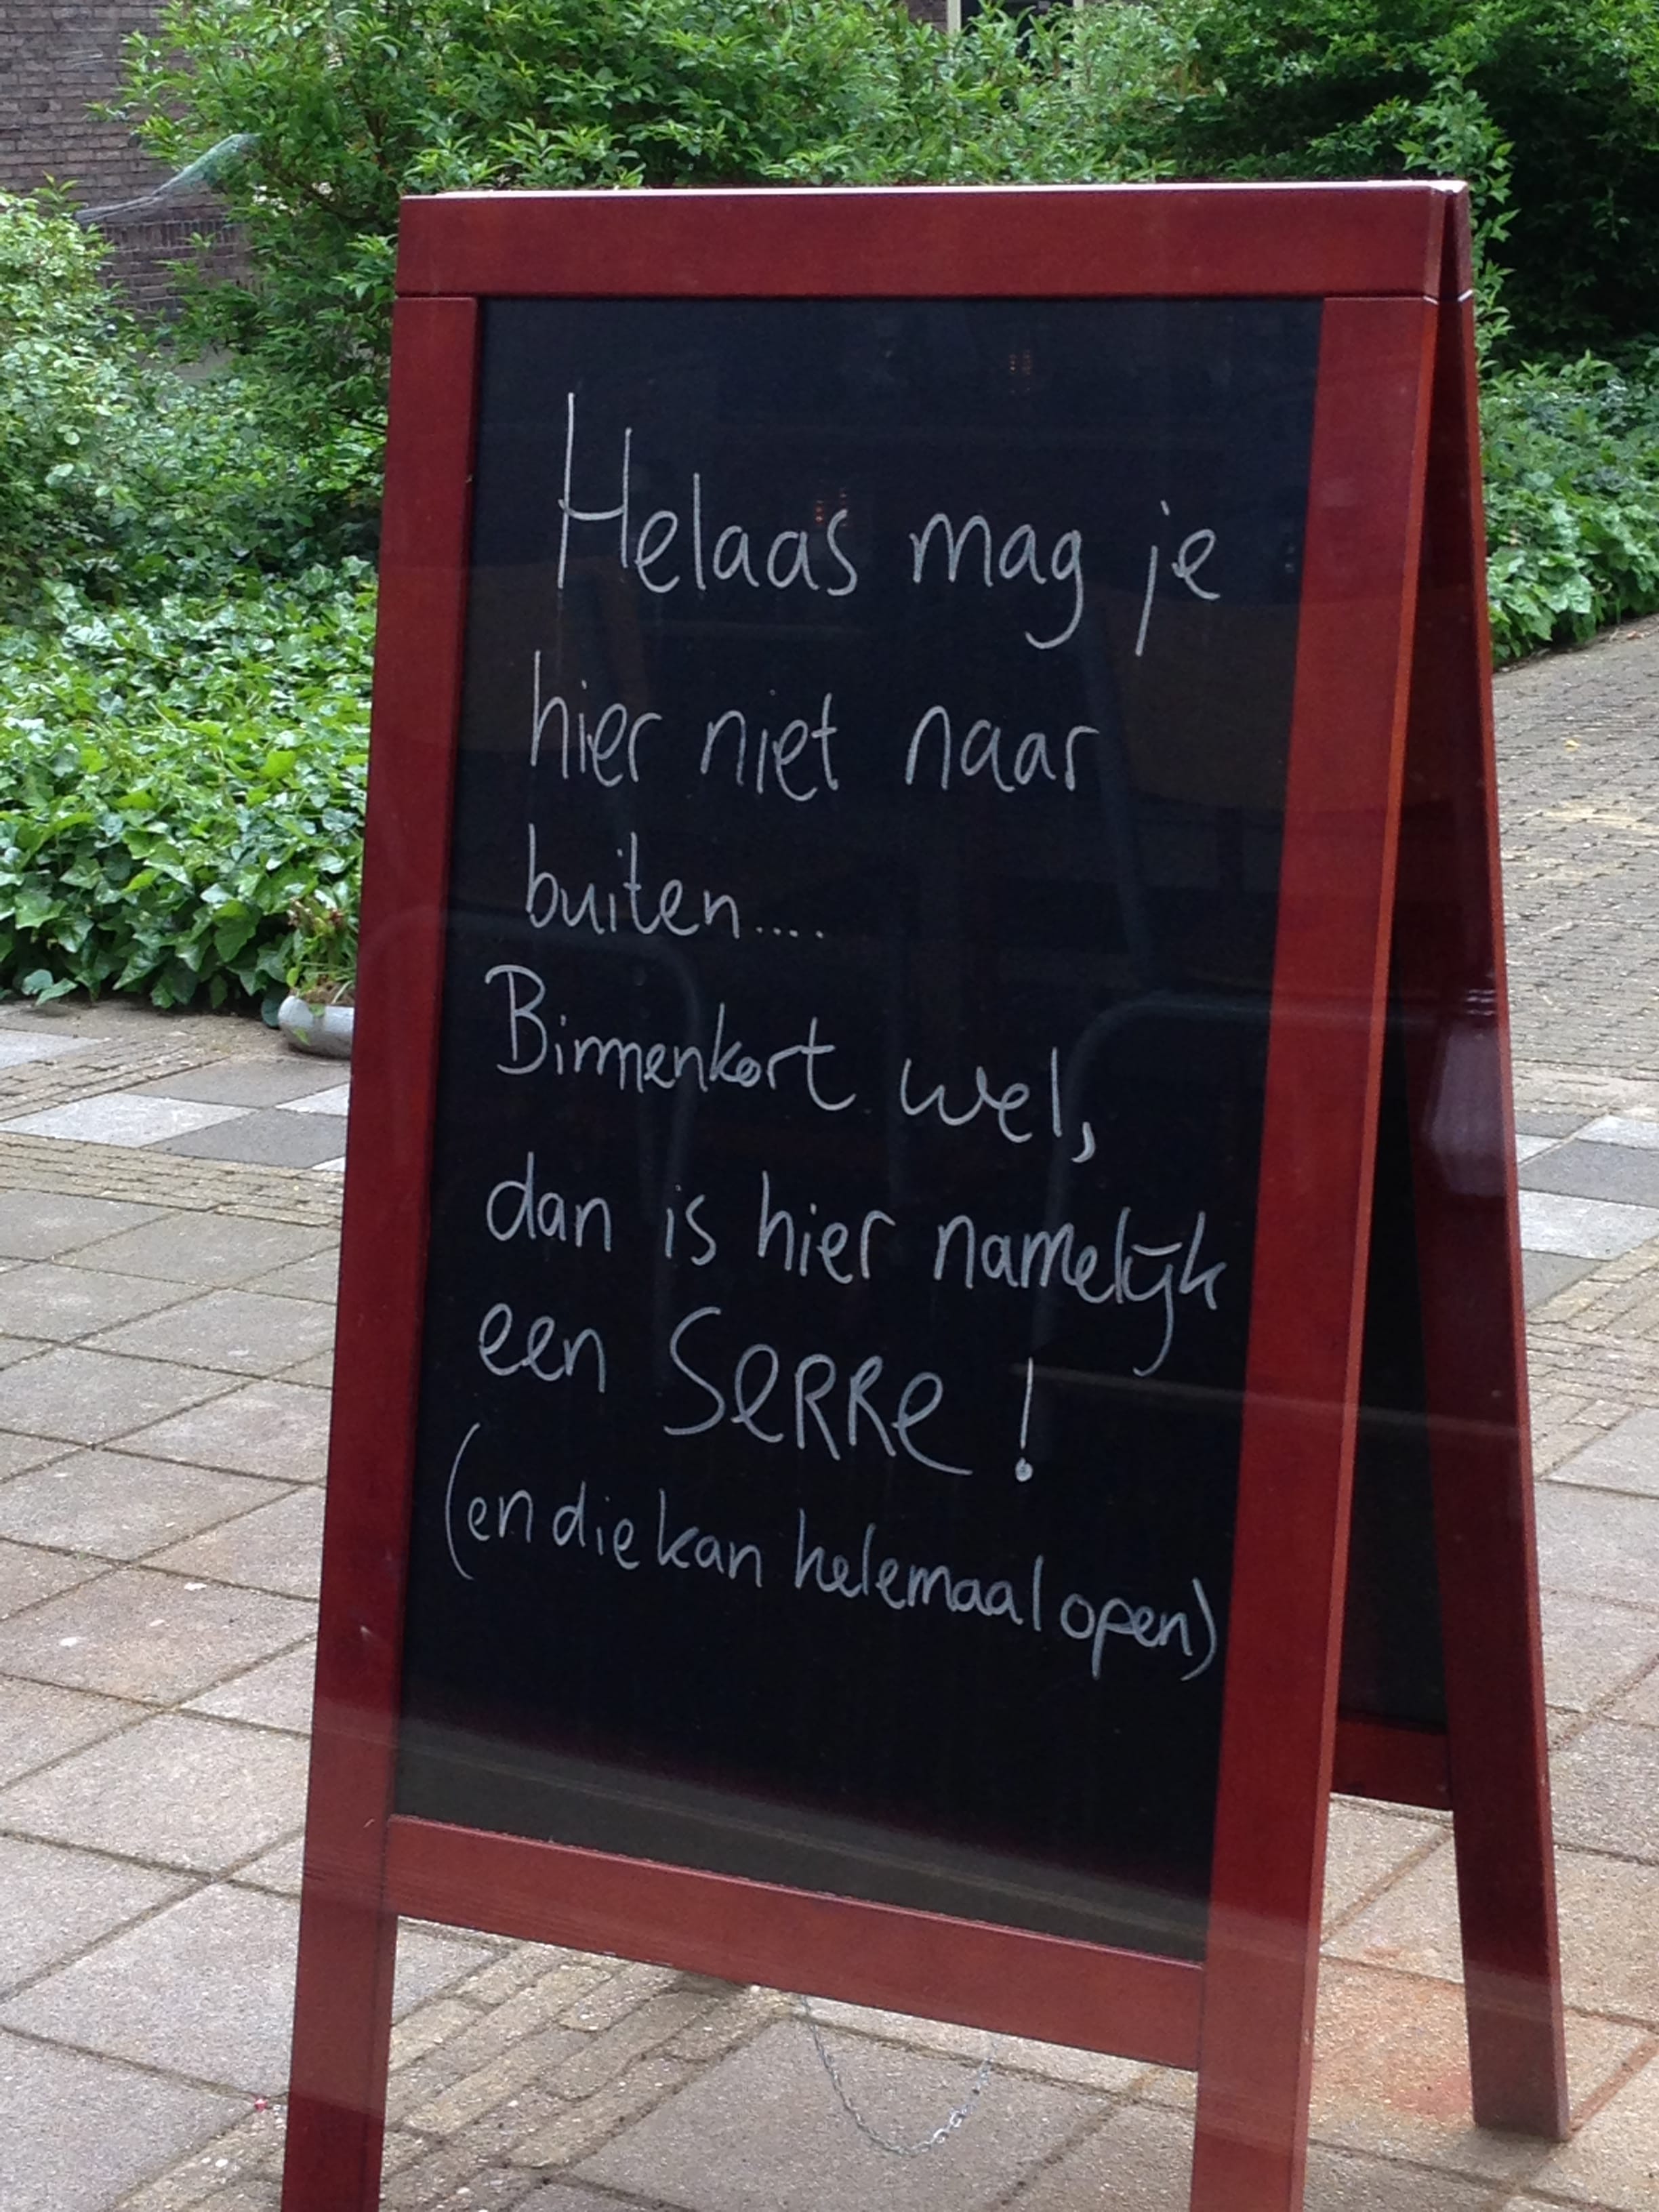 Helaas mag je
hier niet naar
buiten....
Binnenkort wel,
dan is hier namelijk
een SeRRe!
(en die kan helemaal open)